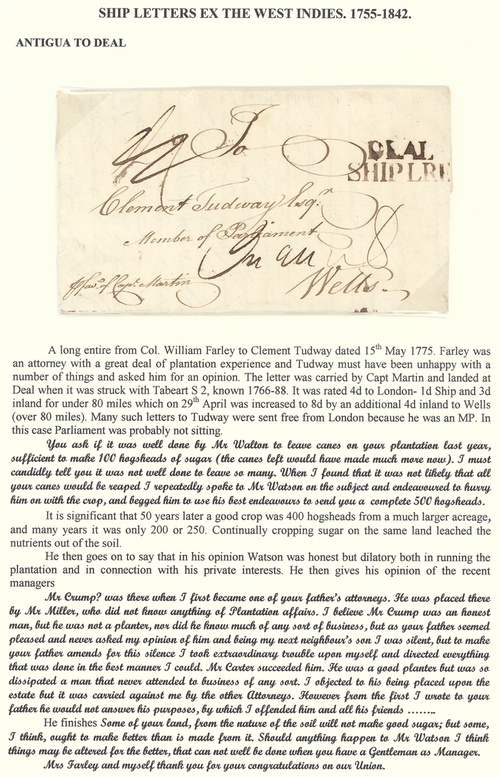 SHIP LETTERS EX THE WEST INDIES. 1755-1842.
ANTIGUA TO DEAL
To
DEAL
SHIP LRE
Clement Tudway Esqr
Member of Parliament
8
Wells
pr favr of Capt Martin
A long entire from Col. William Farley to Clement Tudway dated 15th May 1775. Farley was
an attorney with a great deal of plantation experience and Tudway must have been unhappy with a
number of things and asked him for an opinion. The letter was carried by Capt Martin and landed at
Deal when it was struck with Tabeart S 2, known 1766-88. It was rated 4d to London- 1d Ship and 3d
inland for under 80 miles which on 29th April was increased to 8d by an additional 4d inland to Wells
(over 80 miles). Many such letters to Tudway were sent free from London because he was an MP. In
this case Parliament was probably not sitting.
You ask if it was well done by Mr Walton to leave canes on your plantation last year,
sufficient to make 100 hogsheads of sugar (the canes left would have made much more now). I must
candidly tell you it was not well done to leave so many. When I found that it was not likely that all
your canes would be reaped I repeatedly spoke to Mr Watson on the subject and endeavoured to hurry
him on with the crop, and begged him to use his best endeavours to send you a complete 500 hogsheads.
It is significant that 50 years later a good crop was 400 hogsheads from a much larger acreage,
and many years it was only 200 or 250. Continually cropping sugar on the same land leached the
nutrients out of the soil.
He then goes on to say that in his opinion Watson was honest but dilatory both in running the
plantation and in connection with his private interests. He then gives his opinion of the recent
managers
Mr Crump? was there when I first became one of your father's attorneys. He was placed there
by Mr Miller, who did not know anything of Plantation affairs. I believe Mr Crump was an honest
man, but he was not a planter, nor did he know much of any sort of business, but as your father seemed
pleased and never asked my opinion of him and being my next neighbour's son I was silent, but to make
your father amends for this silence I took extraordinary trouble upon myself and directed everything
that was done in the best manner I could. Mr Carter succeeded him. He was a good planter but was so
dissipated a man that never attended to business of any sort. I objected to his being placed upon the
estate but it was carried against me by the other Attorneys. However from the first I wrote to your
father he would not answer his purposes, by which I offended him and all his friends ........
He finishes Some of your land, from the nature of the soil will not make good sugar; but some,
I think, ought to make better than is made from it. Should anything happen to Mr Watson I think
things may be altered for the better, that can not well be done when you have a Gentleman as Manager.
Mrs Farley and myself thank you for your congratulations on our Union.